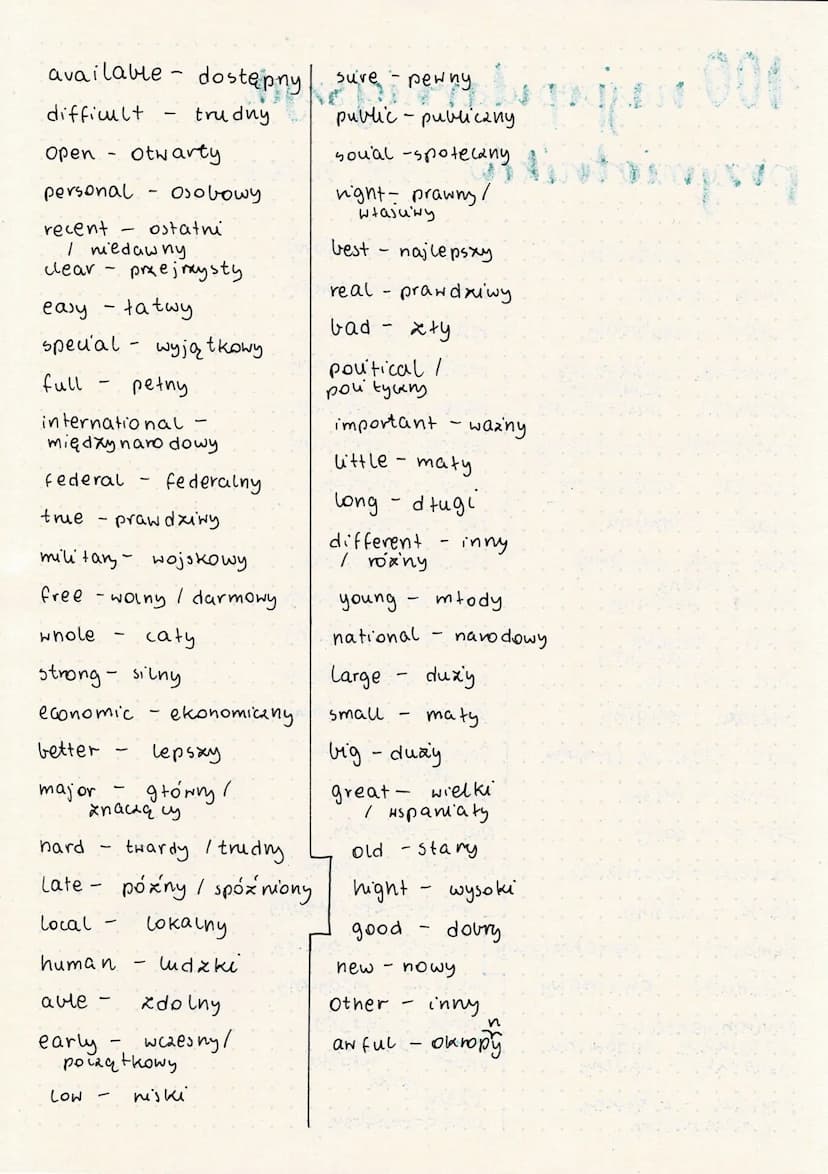 available - dostępny
difficult - trudny
open - otwarty
personal - osobowy
recent - ostatni
/ niedawny
clear - przejrzysty
easy - łatwy
special - wyjątkowy
full - pełny
international -
międzynarodowy
federal - federalny
true - prawdziwy
military - wojskowy
free - wolny / darmowy
whole - cały
strong - silny
economic - ekonomiczny
better - lepszy
major - główny /
znaczący
hard - twardy / trudny
late - późny / spóźniony
local - lokalny
human - ludzki
able - zdolny
early - wczesny/
początkowy
low - niski
sure - pewny
public - publiczny
social - społeczny
right - prawny /
właściwy
best - najlepszy
real - prawdziwy
bad - zły
political /
polityczny
important - ważny
little - mały
long - długi
different - inny
/ różny
young - młody
national - narodowy
large - duży
small - mały
big - duży
great - wielki
/ wspaniały
old - stary
hight - wysoki
good - dobry
new - nowy
other - inny
awful - okropny